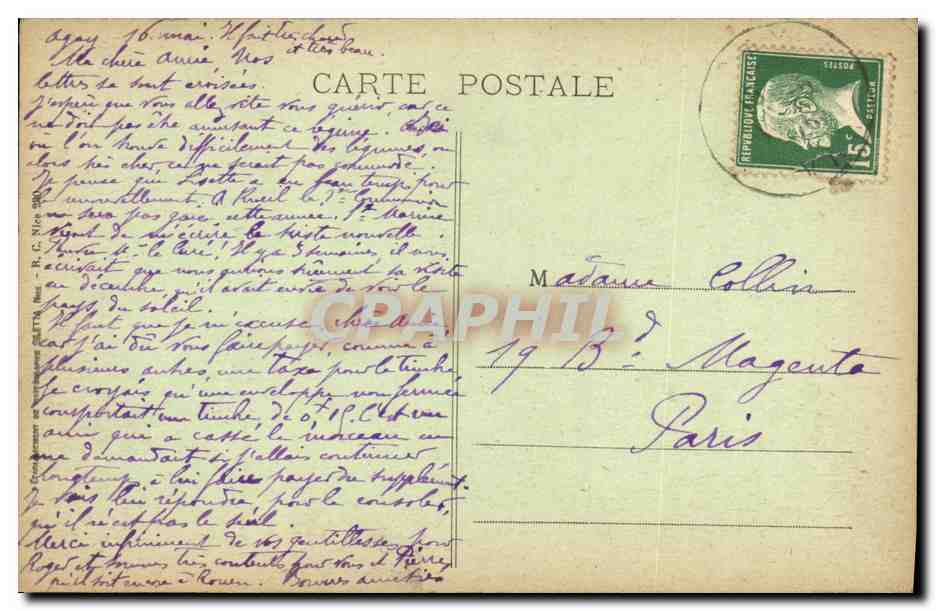 Agay 16 mai. Il fait très chaud
et très beau.
Ma chère amie Nos
lettres se sont croisées.
J'espère que vous allez vite vous guérir car ce
ne doit pas être amusant ce régime!
où l'on trouve difficilement des légumes, ou
alors très cher ce ne serait pas commode.
Je pense que Lisette a eu beau temps pour
le renouvellement. A Rueil la 1re Communion
ne sera pas gaie cette année. St Marine
vient de m'écrire la triste nouvelle.
Pauvre Mr le Curé! Il y a 3 semaines, il nous
écrivait que nous aurions sûrement sa visite
en décembre qu'il avait envie de voir le
pays du soleil.
Il faut que je m'excuse, chère amie,
car j'ai dû vous faire payer, comme à
plusieurs autres, une taxe pour le timbre
Je croyais qu'une enveloppe non fermée
comportait un timbre de 0f 15. C'est un
ami qui a cassé le morceau en
me demandant si j'allais continuer
longtemps à lui faire payer du supplément.
Je vais lui répondre, pour le consoler,
qu'il n'est pas le seul.
Merci infiniment de vos gentillesses pour
Roger et sommes très contents pour vous et Pierre,
qu'il soit encore à Rouen. Bonnes amitiés
CARTE POSTALE
REPUBLIQUE FRANÇAISE
POSTES
PASTEUR
15c
Madame Collin
19 Bd Magenta
Paris
CRAPHIL
R. C. Nice